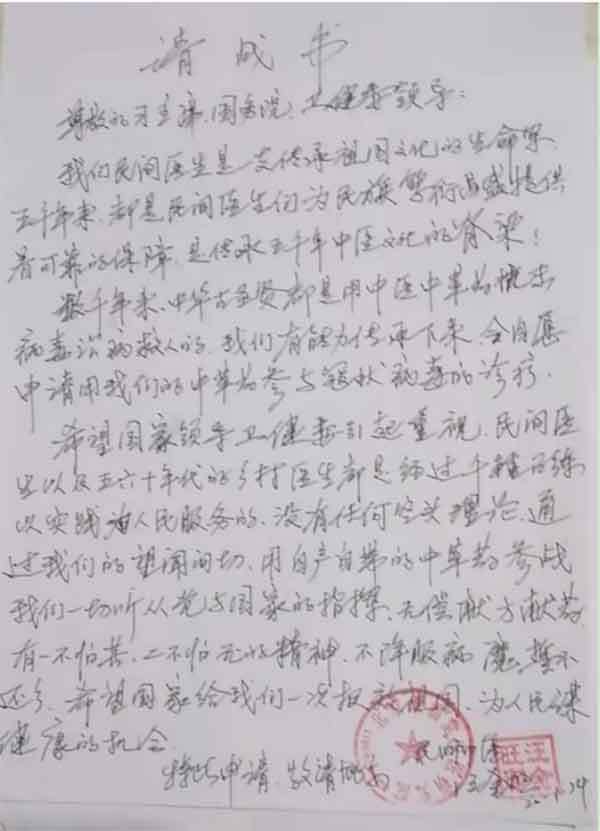 请战书
尊敬的习主席、国务院、卫健委领导：
我们民间医生是支传承祖国文化的生命军
五千年来，都是民间医生们为民族繁衍昌盛提供
着可靠的保障，是传承五千年中医文化的脊梁！
数千年来，中华古圣贤都是用中医中草药
病毒治病救人的，我们有能力传承下来，今自愿
申请用我们的中草药参与冠状病毒的诊疗．
希望国家领导卫健委引起重视，民间医
生以及五六十年代的乡村医生都是经过千锤百练
以实践为人民服务的，没有任何空头理论，通
过我们的望闻问切，用自产自的中草药参战
我们一切听从党与国家的指挥，无偿献方献药
有一不怕苦，二不怕死的精神，不降服病魔誓不
还乡，希望国家给我们一次报效祖国，为人民谋
健康的机会
特此申请，敬请
民
汪金